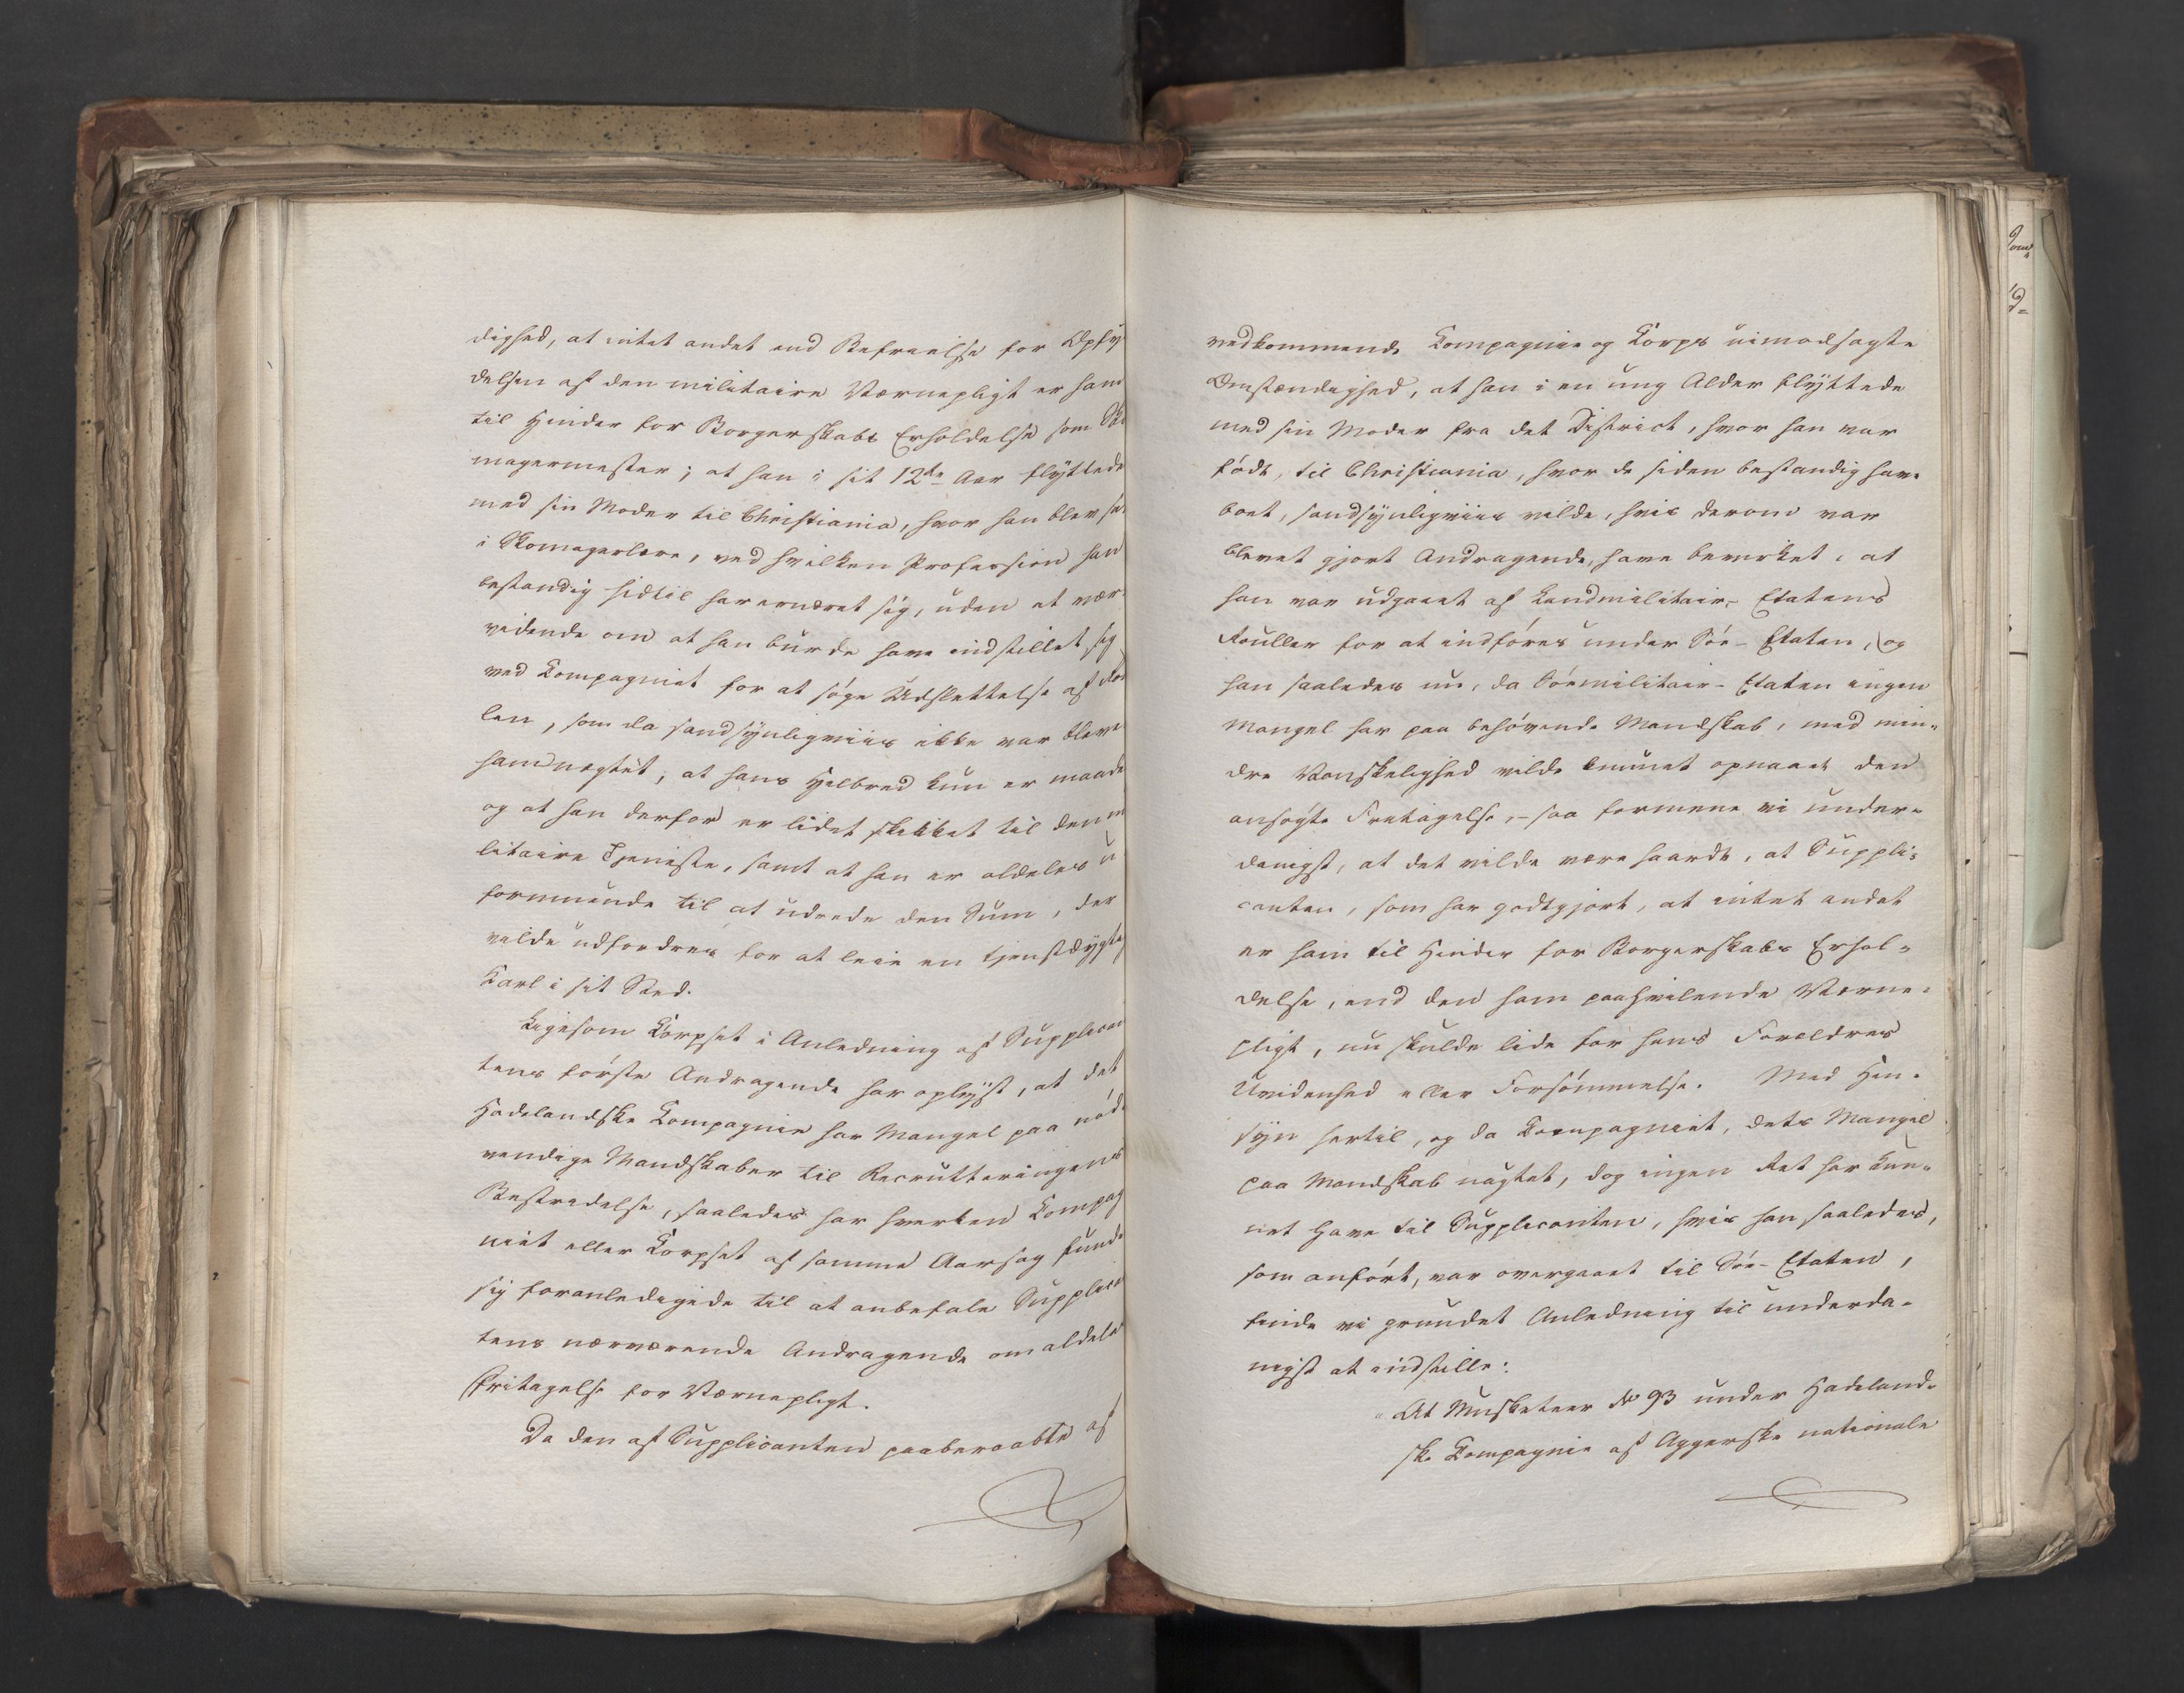 dighed, at intet andet end Befrielse for Opfyl
delsen af den militaire Værnepligt er ham
til Hinder for Borgerskabs Erholdelse som Sko
magermester; at han i sit 12te Aar flyttede
med sin Moder til Christiania, hvor han blev sat
i Skomagerlære, ved hvilken Profession han
bestandig hidtil har ernæret sig, uden at være
vidende om at han burde have indstillet sig
ved Compagniet for at søge Udslettelse af Rol
len, som da sandsynligviis ikke var bleven
ham negtet; at hans Helbred kun er maade
og at han derfor er lidet skikket til den mi
litaire Tjeneste, samt at han er aldeles u
formuende til at udrede den Sum, der
vilde udfordres for at leie en tjenstdygtig
Karl i sit Sted.
Ligesom Corpset i Anledning af Supplican
tens første Andragende har oplyst, at det
Hadelandske Compagnie har Mangel paa nød
vendige Mandskaber til Recrutteringens
Bestridelse, saaledes har hverken Compag
niet eller Corpset af samme Aarsag funde
sig foranledigede til at anbefale Supplican
tens nærværende Andragende om aldeles
Fritagelse for Værnepligt.
Da den af Supplicanten paaberaabte af
vedkommende Compagnie og Corps uimodsagte
Omstændighed, at han i en ung Alder flyttede
med sin Moder fra det District, hvor han var
født, til Christiania, hvor de siden bestandig have
boet, sandsynligviis vilde, hvis derom var
blevet gjort Andragende, have bevirket, at
han var udgaaet af Landmilitair-Etatens
Rouller for at indføres under Søe-Etaten, og
han saaledes nu, da Søemilitair-Etaten ingen
Mangel har paa behøvende Mandskab, med min-
dre Vanskelighed vilde kunnet opnaaet den
ansøgte Fritagelse,- saa formene vi under-
danigst, at det vilde være haardt, at Suppli-
canten, som har godtgjort, at intet andet
er ham til Hinder for Borgerskabs Erhol-
delse, end den ham paahvilende Værne-
pligt, nu skulde lide for hans Forældres
Uvidenhed eller Forsømmelse. Med Hen-
syn hertil, og da Compagniet, dets Mangel
paa Mandskab uagtet, dog ingen Ret har kun-
net have til Supplicanten, hvis han saaledes,
som anført, var overgaaet til Søe-Etaten,
finde vi grundet Anledning til underda-
nigst at indstille:
"At Musketeer No 93 under Hadeland-
ske Compagnie af Aggerske nationale